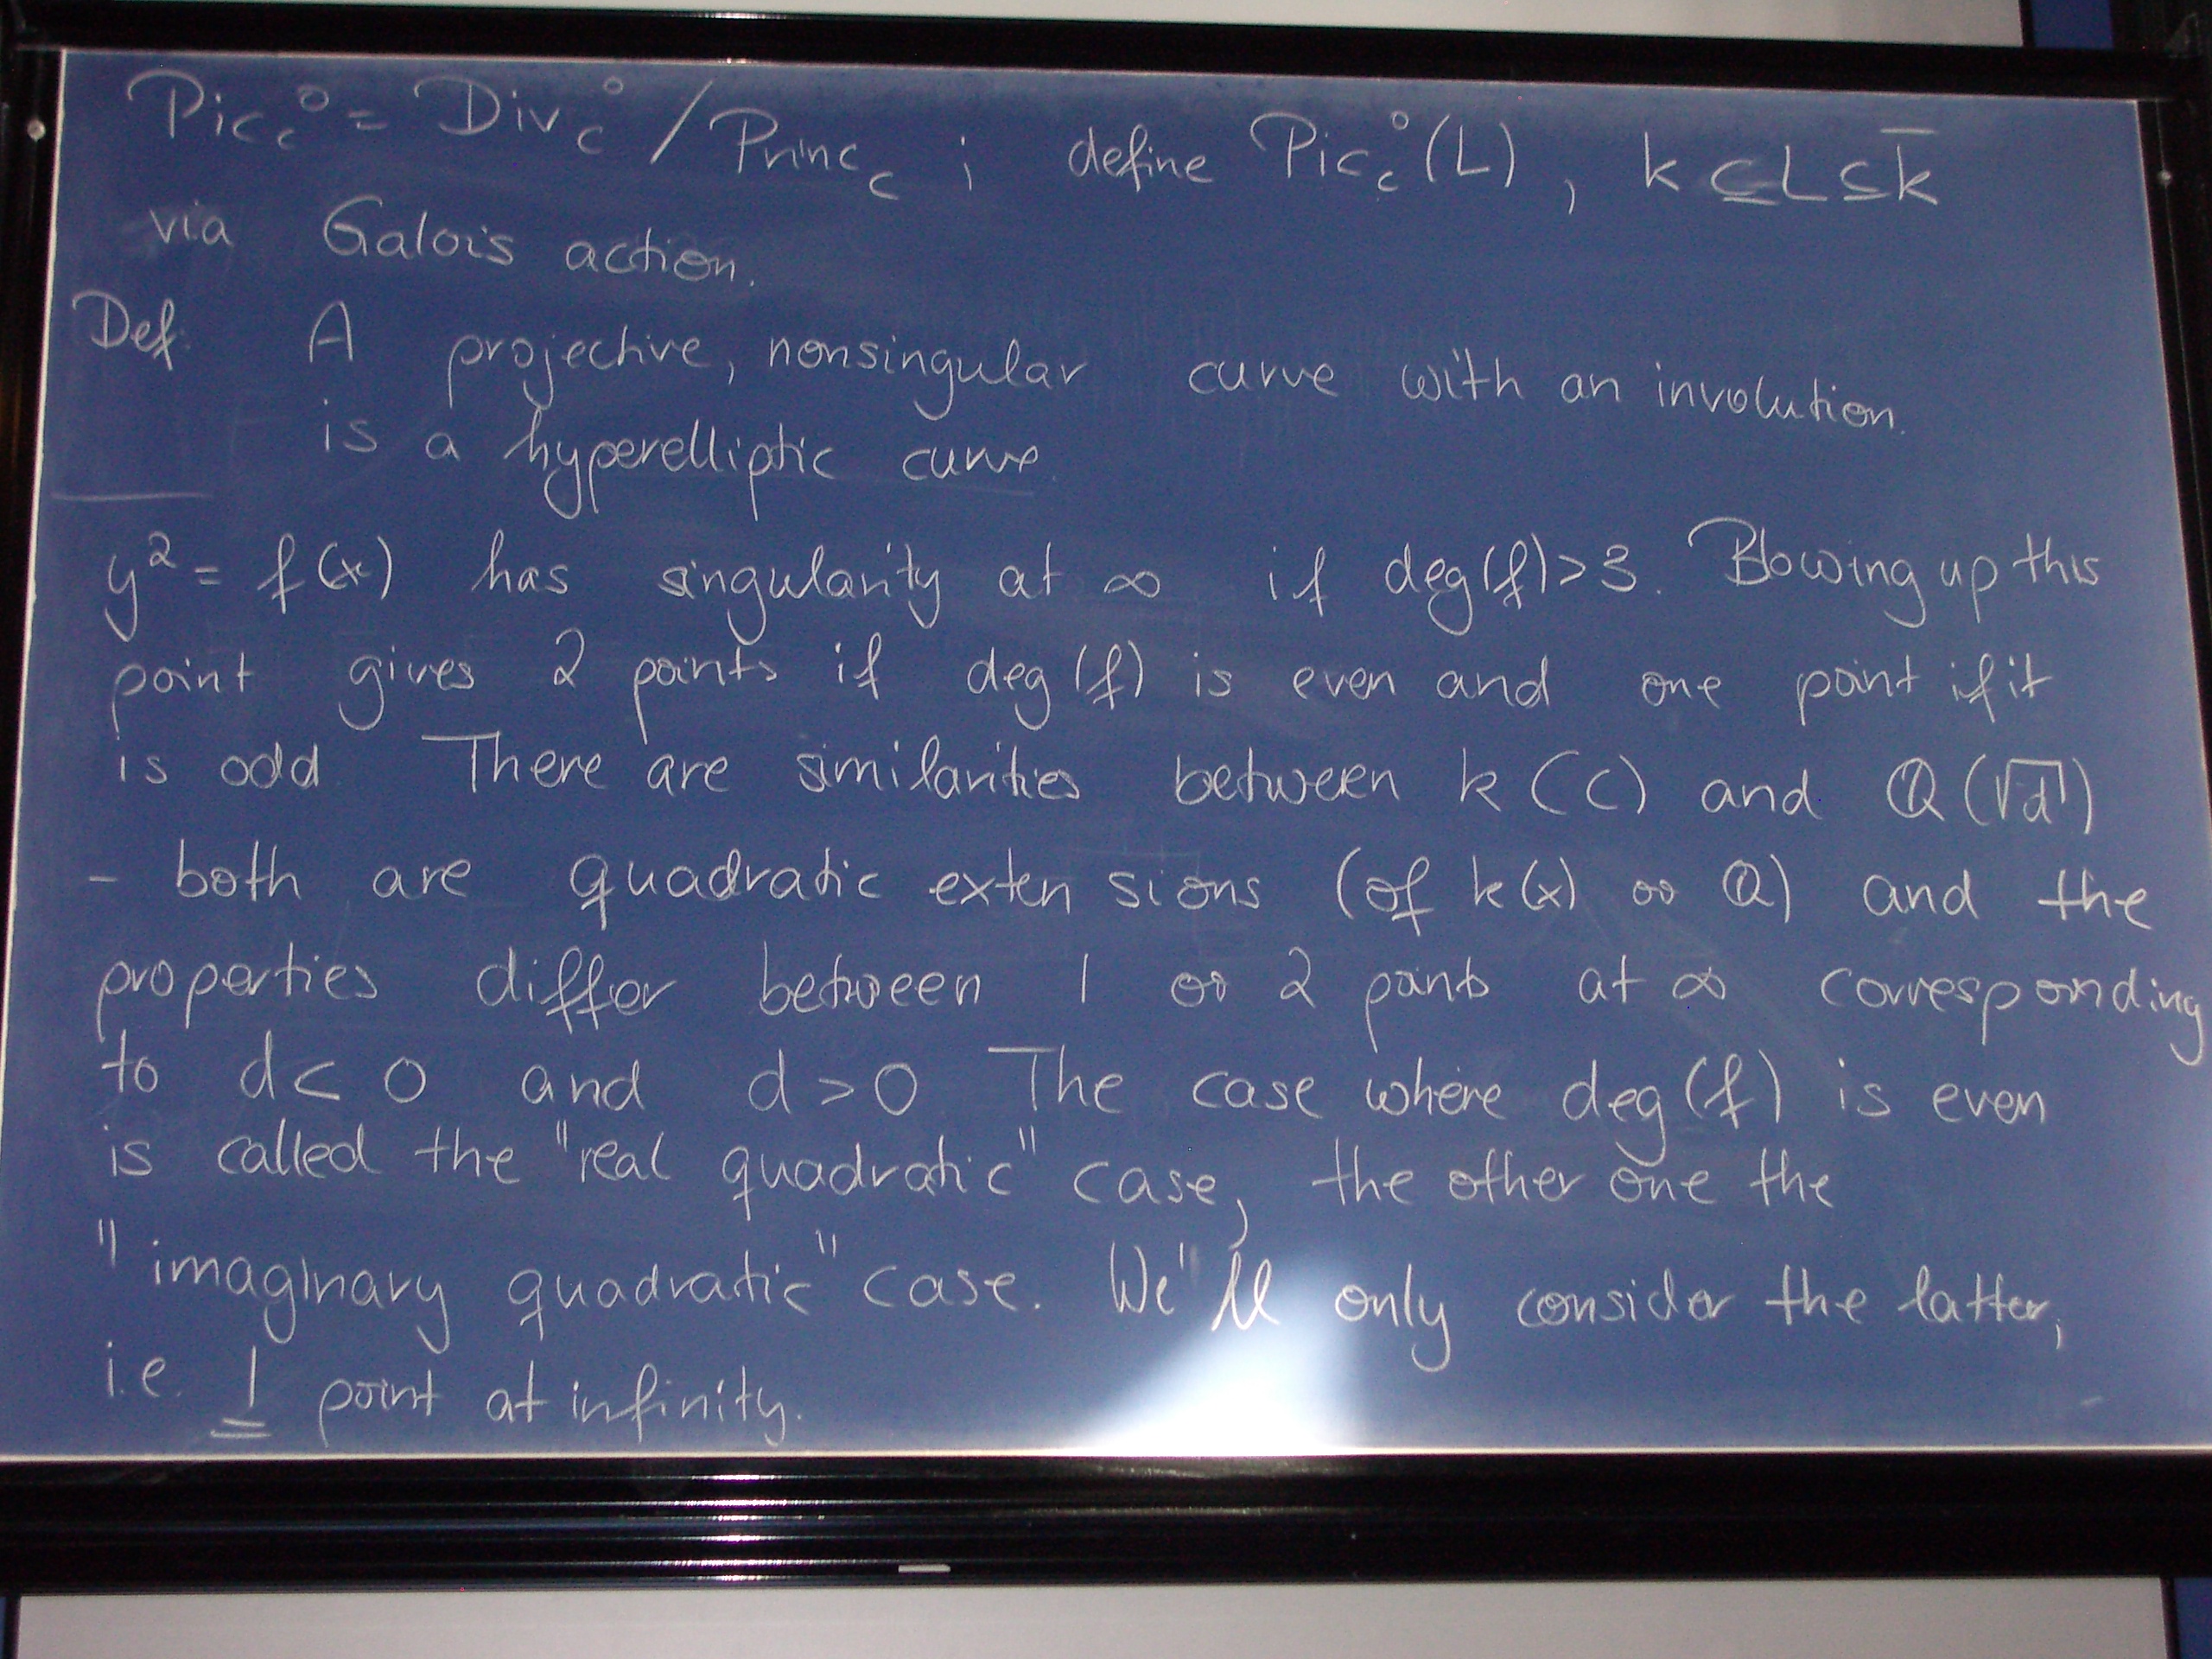 Pic_C^0 = Div_C^0 / Princ_C ; define Pic_C^0(L), k ⊆ L ⊆ k̄
via Galois action.
Def. A projective, nonsingular curve with an involution.
is a hyperelliptic curve.
y² = f(x) has singularity at ∞ if deg(f)>3. Blowing up this
point gives 2 points if deg(f) is even and one point if it
is odd There are similarities between k(C) and Q(√d)
- both are quadratic extensions (of k(x) or Q) and the
properties differ between 1 or 2 points at ∞ corresponding
to d<0 and d>0 The case where deg(f) is even
is called the "real quadratic" case, the other one the
"imaginary quadratic" case. We'll only consider the latter,
i.e. 1 point at infinity.